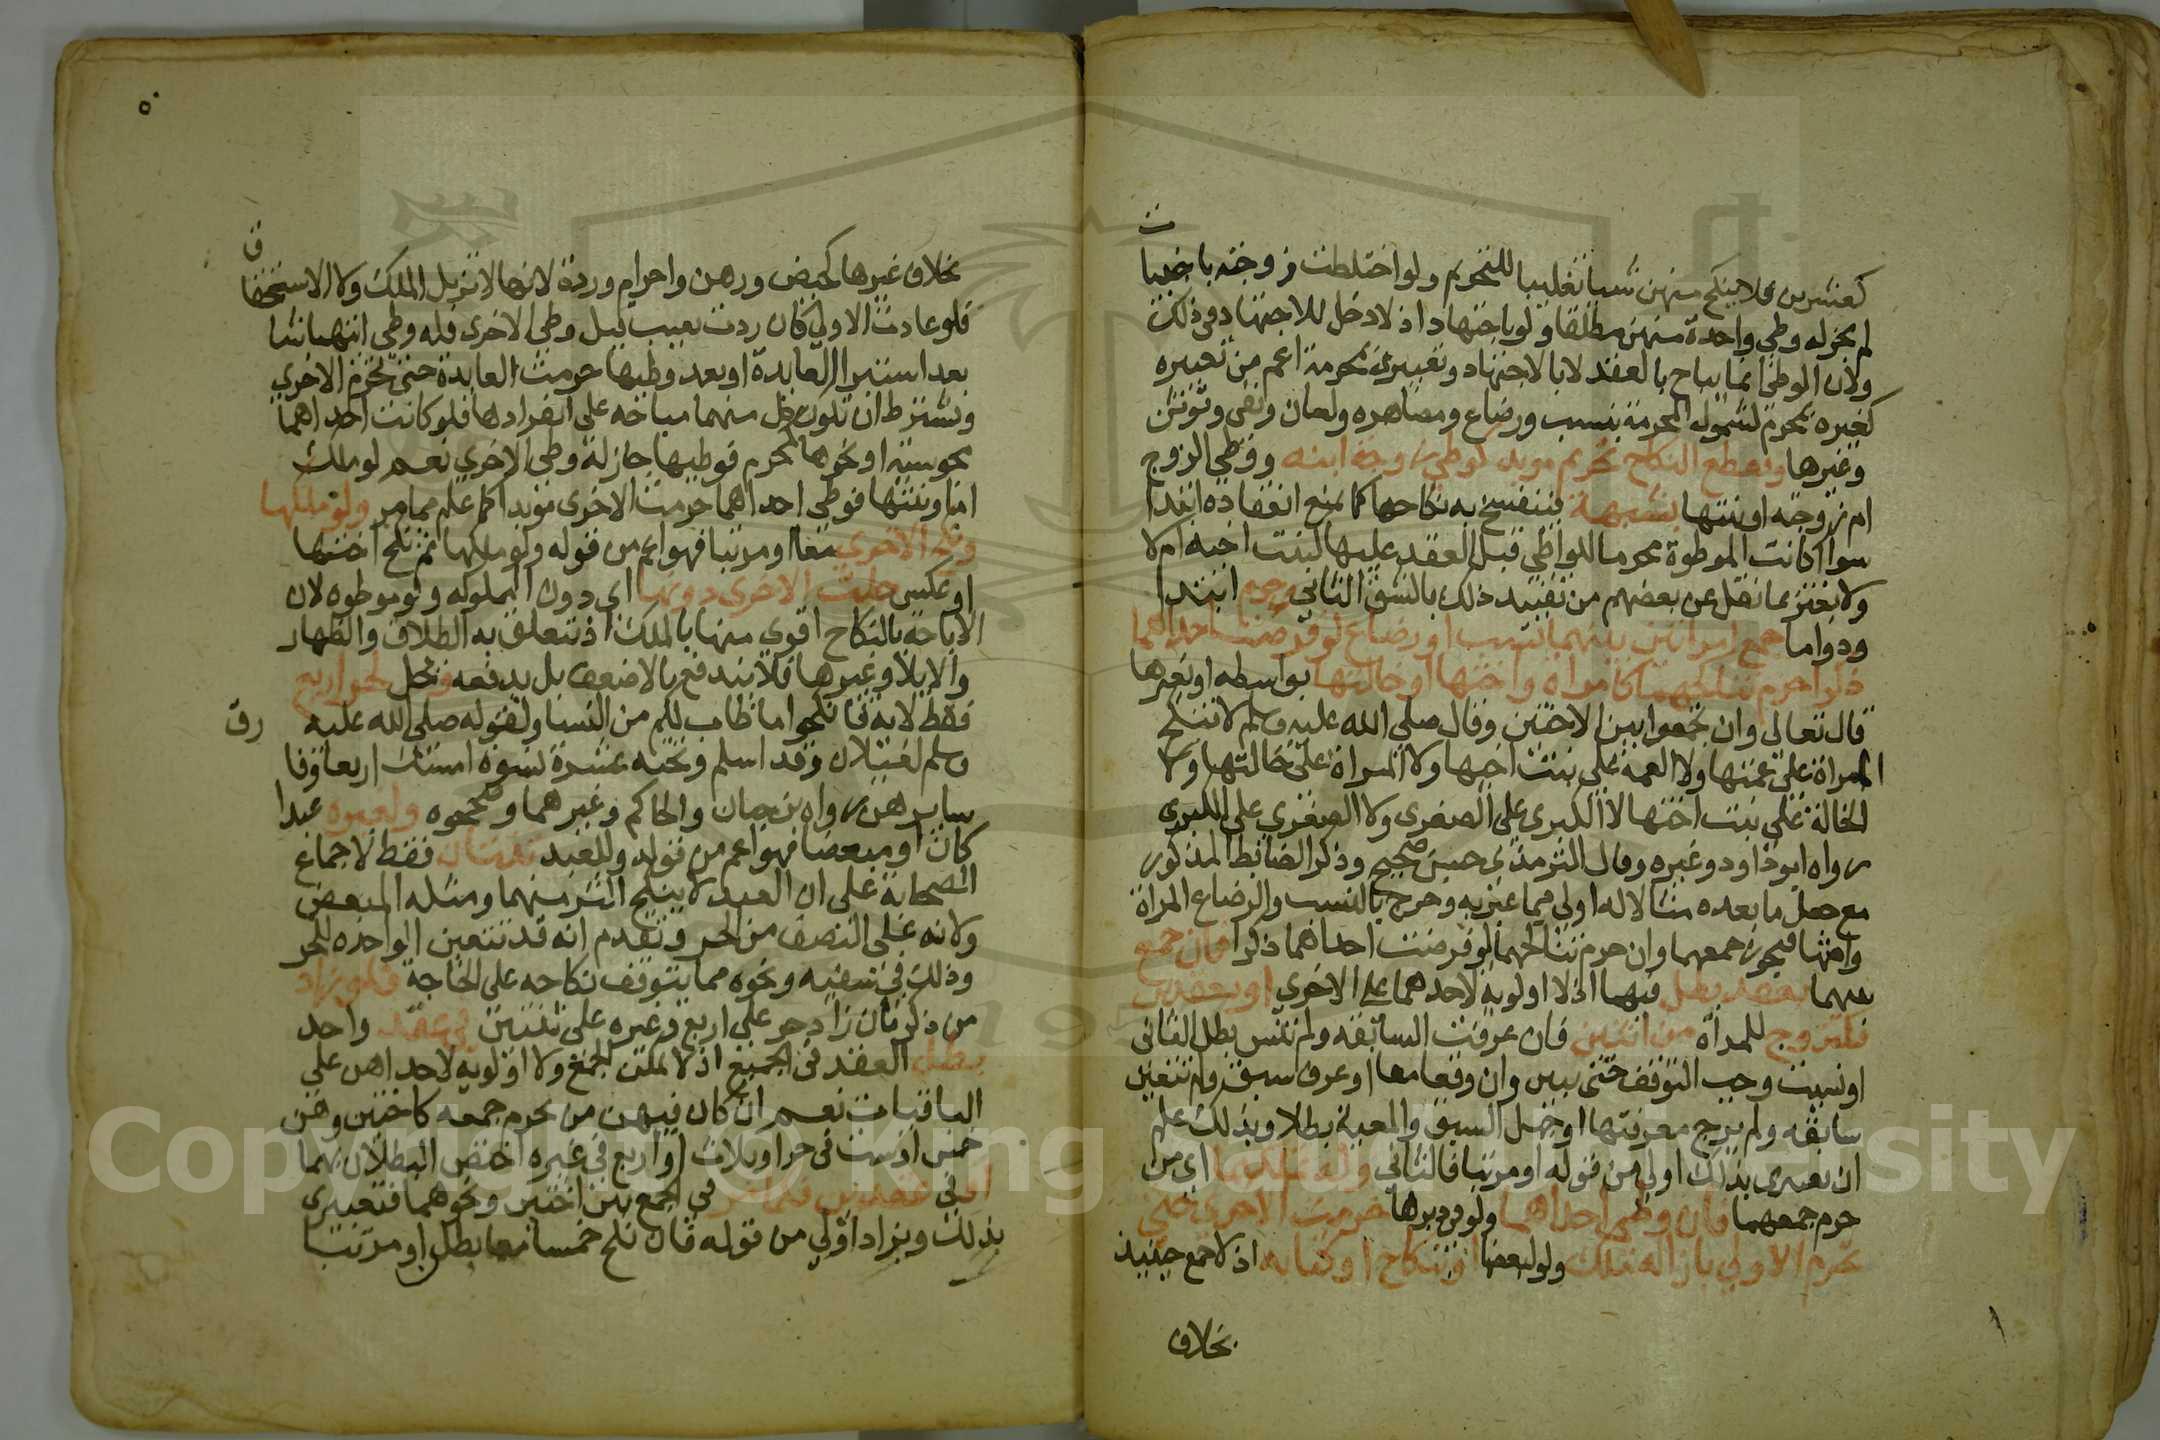 كعشرين فلا ينكح منهن شيا تغليبا للتحريم ولو اختلطت زوجته باجنبيات
لم يجز له وطي واحدة منهن مطلقا ولو باجتهاد اذ لا دخل للاجتهاد في ذلك
ولان الوطي انما يباح بالعقد لا بالاجتهاد وتعبيري بمحرمة اعم من تعبيره
كغيره بمحرم لشموله المحرمة بنسب ورضاع ومصاهره ولعان ونفي وتوثن
وغيرها ويقطع النكاح تحريم موبد كوطي زوجة ابنه ووطي الزوج
ام زوجته او بنتها بشبهة فينفسخ به نكاحها كما يمنع انعقاده ابتدا
سوا اكانت الموطوة محرما للواطي قبل العقد عليها كبنت اخيه ام لا
ولا يغتر بما نقل عن بعضهم من تقييد ذلك بالشق الثاني وحرم ابتدا
ودواما جمع امراتين بينهما نسب او رضاع لو فرضت احداهما
ذكرا حرم تناكحهما كامراة واختها او خالتها بواسطه او بغيرها
قال تعالى وان تجمعوا بين الاختين وقال صلى الله عليه وسلم لا تنكح
المراة على عمتها ولا العمة على بنت اخيها ولا المراة على خالتها ولا
الخالة على بنت اختها لا الكبرى على الصغرى ولا الصغرى على الكبرى
رواه ابو داود وغيره وقال الترمذي حسن صحيح وذكر الضابط المذكور
مع جعل ما بعده مثالا له اولى مما عبر به وخرج بالنسب والرضاع المراة
وامتها فيجوز جمعهما وان حرم تناكحهما لو فرضت احداهما ذكرا فان جمع
بينهما بعقد بطل فيهما اذ لا اولويه لاحدهما على الاخرى او بعقدين
فكتزوج للمراة من اثنين فان عرفت السابقه ولم تنس بطل الثاني
او نسيت وجب التوقف حتى يبين وان وقعا معا او عرف سبق ولم تتعين
سابقه ولم يرج معرفتها او جهل السبق والمعية بطلا وبذلك علم
ان تعبيري بذلك اولى من قوله او مرتبا فالثاني وله تملكهما اي من
حرم جمعهما فان وطي احداهما ولو في دبرها حرمت الاخرى حتى
تحرم الاولى بازالة ملك ولو لبعضها او بنكاح او كتابه اذ لا جمع حينيذ
بخلاف
٥٠
بخلاف غيرها كحيض ورهن واحرام وردة لانها لا تزيل الملك ولا الاستحقاق
فلو عادت الاولى كان ردت بعيب قبل وطي الاخرى فله وطي ايتهما شا
بعد استبرا العايدة او بعد وطيها حرمت العايدة حتى تحرم الاخرى
ويشترط ان تكون كل منهما مباحه على انفرادها فلو كانت احداهما
مجوسيه او نحوها كمحرم فوطيها جاز له وطي الاخرى نعم لو ملك
اما وبنتها فوطي احداهما حرمت الاخرى موبدا كما علم مما مر ولو ملكها
ونكح الاخرى معا او مرتبا فهو اعم من قوله ولو ملكها ثم نكح اختها
او عكس حلت الاخرى دونها اي دون المملوكه ولو موطوه لان
الاباحة بالنكاح اقوى منها بالملك اذ تتعلق به الطلاق والظهار
والايلا وغيرها فلا يندفع بالاضعف بل يدفعه وتحل لحر اربع
فقط لاية فانكحوا ما طاب لكم من النسا ولقوله صلى الله عليه
وسلم لغيلان وقد اسلم وتحته عشرة نسوة امسك اربعا وفارق
سايرهن رواه بن حبان والحاكم وغيرهما وصححوه ولغيره عبدا
كان او مبعضا فهو اعم من قوله وللعبد ثنتان فقط لاجماع
الصحابة على ان العبد لا ينكح اكثر منهما ومثله المبعض
ولانه على النصف من الحر وتقدم انه قد تتعين الواحده للحر
وذلك في سفيه ونحوه مما يتوقف نكاحه على الحاجة فلو زاد
من ذكر بان زاد حر على اربع وغيره على ثنتين في عقد واحد
بطل العقد في الجميع اذ لا يمكن الجمع ولا اولوية لاحداهن على
الباقيات نعم ان كان فيهن من يحرم جمعه كاختين وهن
خمس او ست في حر او ثلاث او اربع في غيره اختص البطلان بهما
او في عقدين فكما مر في الجمع بين اختين ونحوهما فتعبيري
بذلك وبزاد اولى من قوله فان نكح خمسا معا بطل او مرتبا